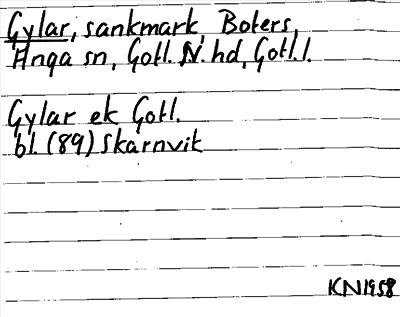 Gylar, sankmark, Boters,
Anga sn, Gotl. N. hd, Gotl.l.
Gylar ek Gotl.
bl. (89) Skarnvik
KN1958